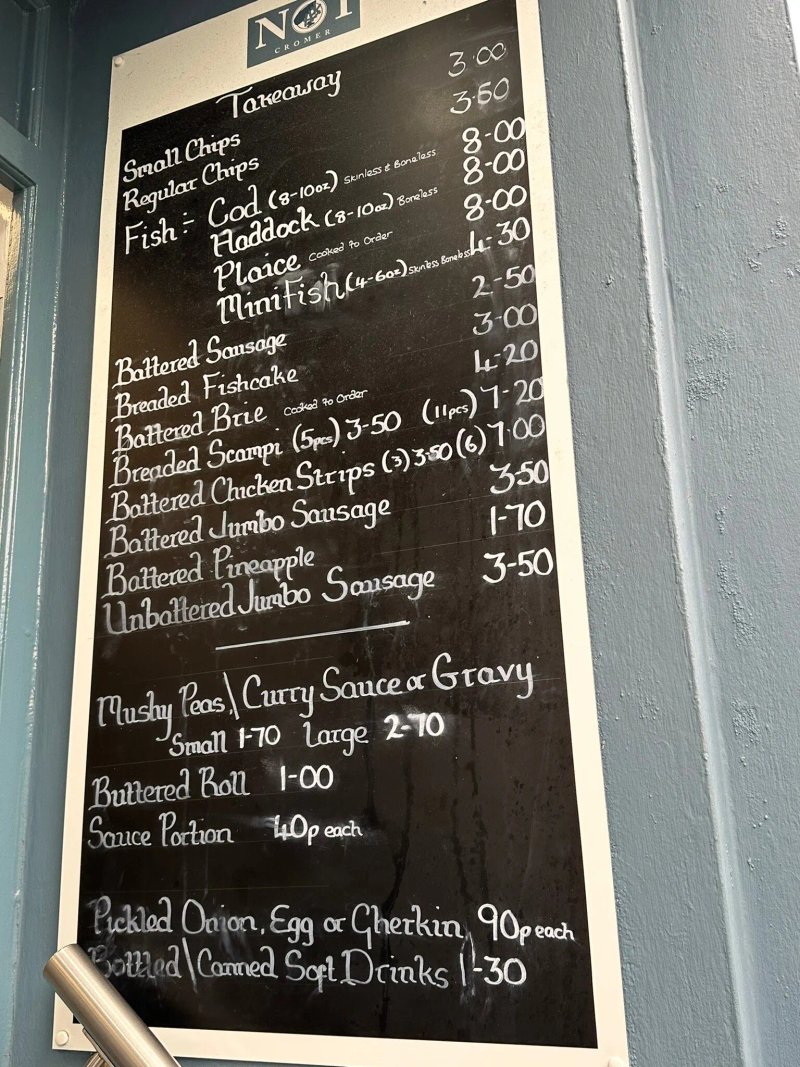 NO1
CROMER
Takeaway
Small Chips 3.00
Regular Chips 3.50
Fish:- Cod (8-10oz) Skinless & Boneless 8-00
Haddock (8-10oz) Boneless 8-00
Plaice Cooked to Order 8-00
Mini Fish (4-6oz) Skinless Boneless 4-30
Battered Sausage 2-50
Breaded Fishcake 3-00
Battered Brie Cooked to Order 4-20
Breaded Scampi (5pcs) 3-50 (11pcs) 7-20
Battered Chicken Strips (3) 3.50 (6) 7.00
Battered Jumbo Sausage 3-50
Battered Pineapple 1-70
Unbattered Jumbo Sausage 3-50
Mushy Peas\Curry Sauce or Gravy
Small 1-70 Large 2-70
Buttered Roll 1-00
Sauce Portion 40p each
Pickled Onion, Egg or Gherkin, 90p each
Bottled\Canned Soft Drinks 1-30